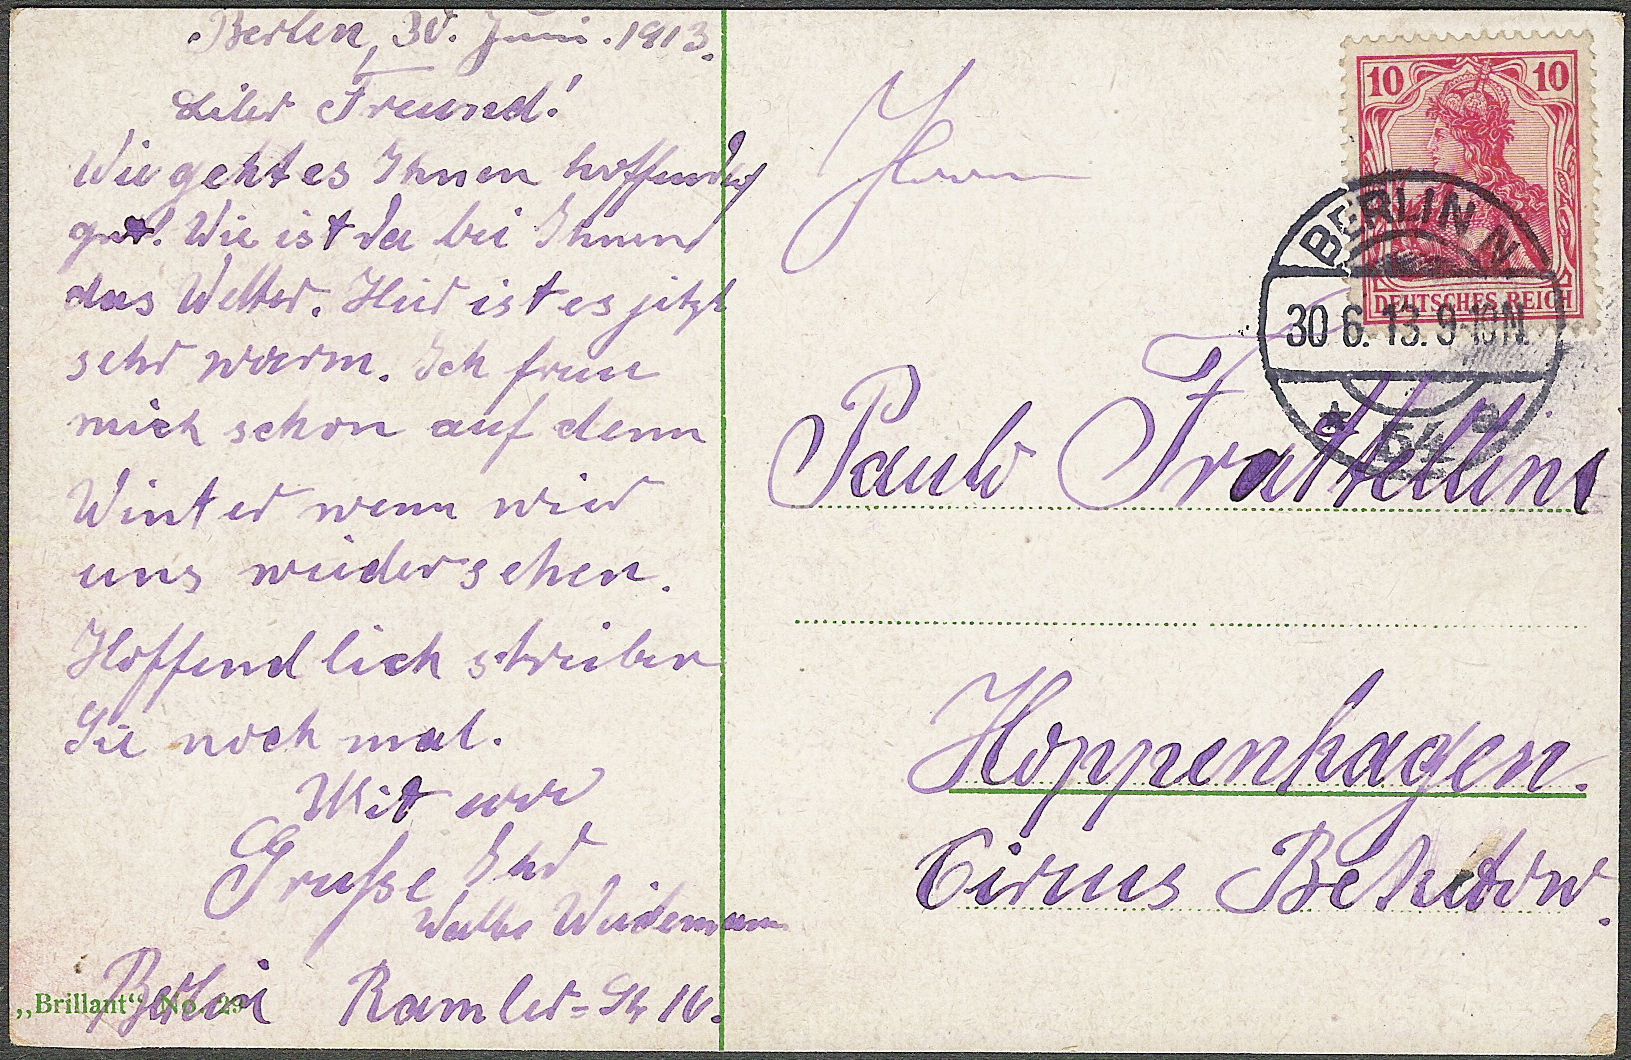 Berlin, 30. Juni. 1913.
Lieber Freund!
Wie geht es Ihnen hoffendlich
gut! Wie ist da bei Ihnen
das Wetter. Hier ist es jetzt
sehr warm. Ich freue
mich schon auf denn
Winter wenn wier
uns wiedersehen.
Hoffendlich schreiben
Sie noch mal.
Mit
Gruße Ihr
Weidemann
Berlin Ramler-Str 16.
„Brillant“ No. 29
Herrn
Paulo Frattellini
Hoppenhagen.
Circus Beketow.
10 10
DEUTSCHES REICH
BERLIN N.
30 6. 13. 9-10 N.
* 54